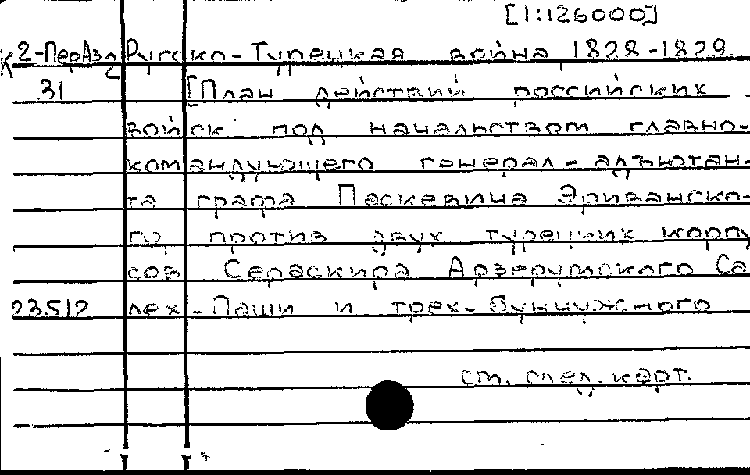 [1:126000]
К 2-ПерАз/2 Русско-Турецкая война 1828-1829.
31 [План действий российских
войск под начальством главно-
командующего генерал-адъютан-
та графа Паскевича Эриванско-
го, против двух турецких корпу
сов Сераскира Арзерумского Са
23.512 лех-Паши и трех-бунчужного
см. след. карт.